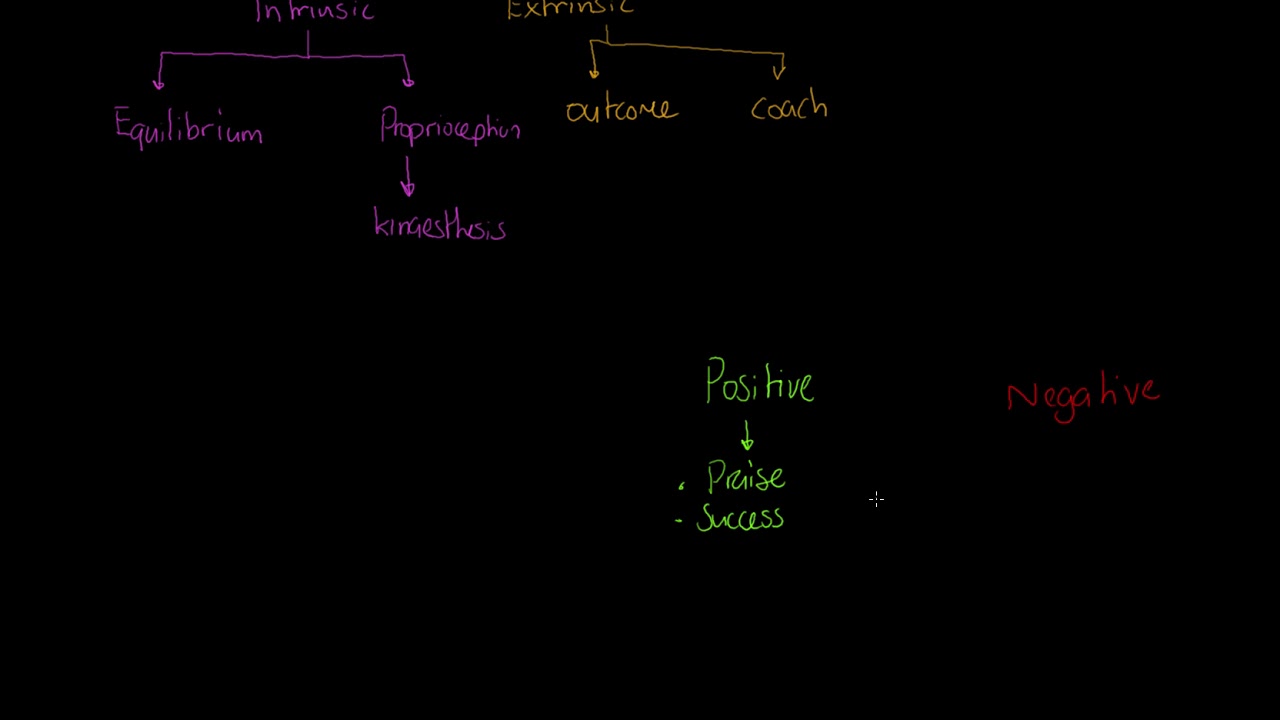 Intrinsic Extrinsic
Equilibrium Proprioception outcome coach
kinaesthesis
Positive Negative
Praise
Success